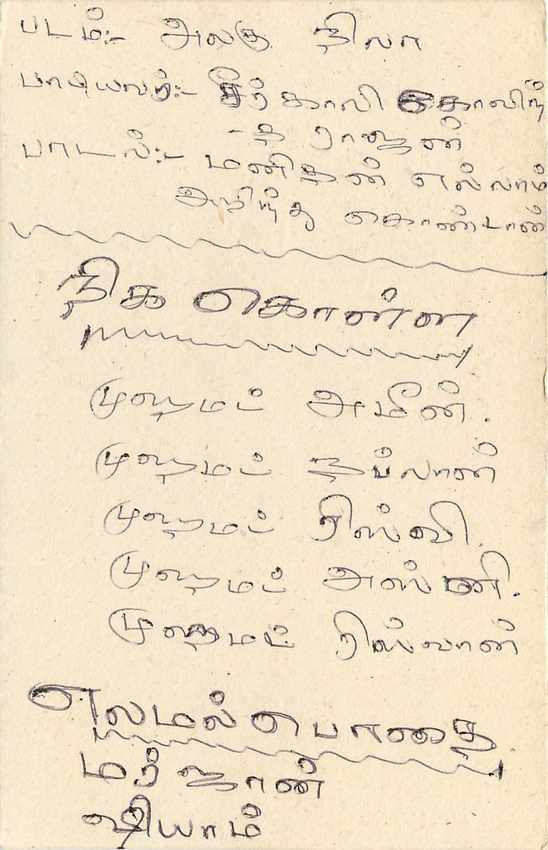 படம்:- அலகு நிலா
பாடியலர்:- சீர்காலி கோவிந்
-த ராஜன்
பாடல்:- மனிதன் எல்லாம்
அறிந்து கொண்டான்
நிக கொள்ள
முஹமட் அமீன்.
முஹமட் நப்லான்
முஹமட் ரிஸ்வி.
முஹமட் அஸ்னி.
முஹமட் ரிஸ்லான்
எலமல்பொதை
மர்ஜான்
ஷியாம்